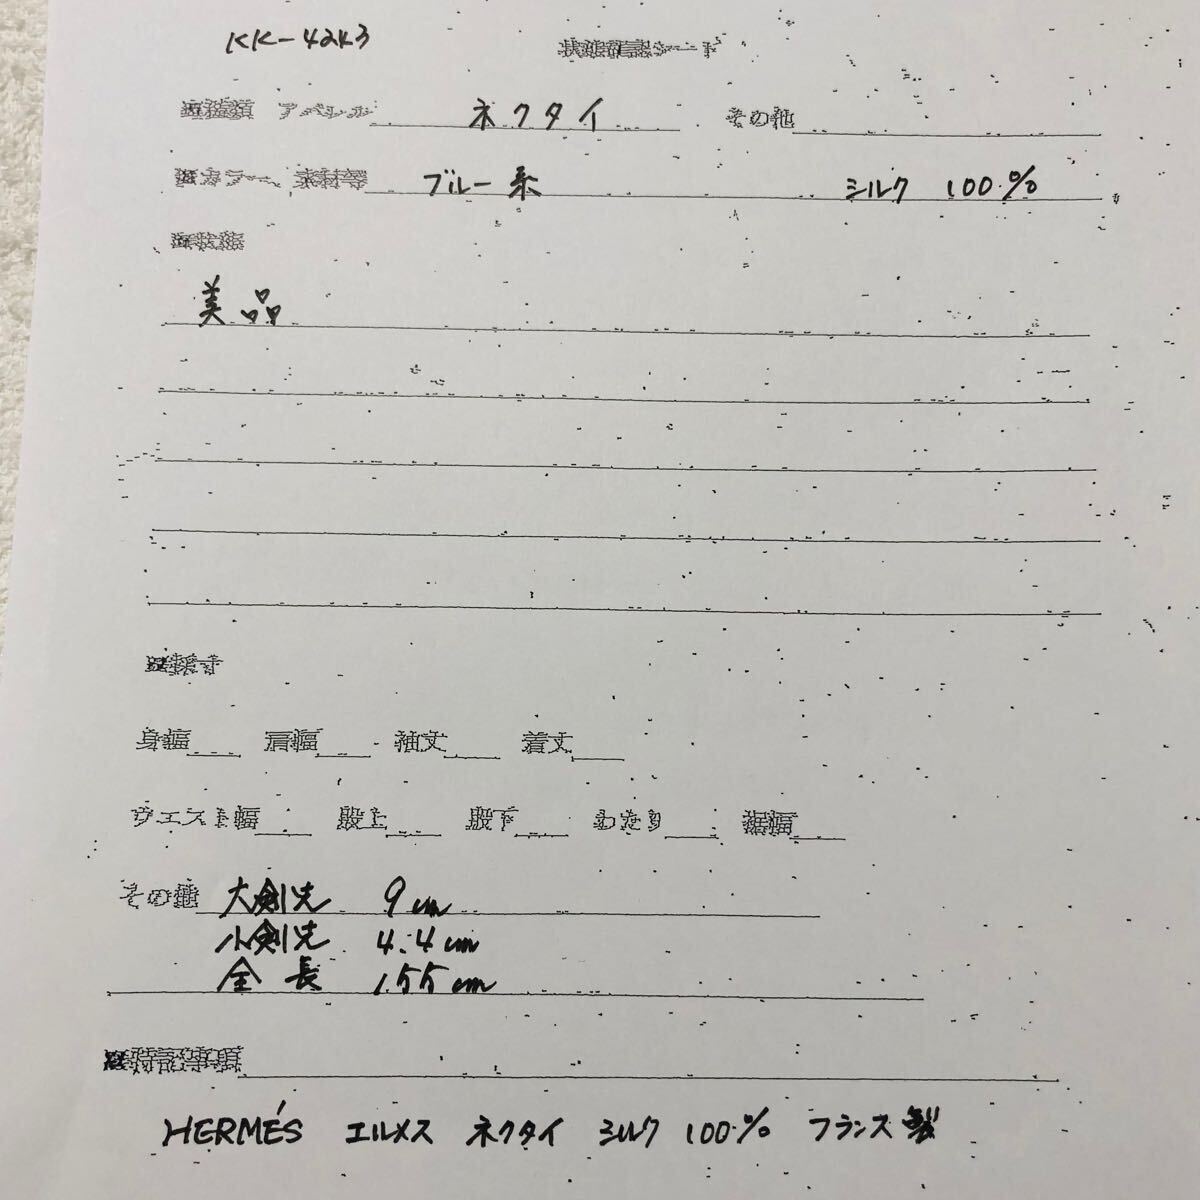 KK-4243
状態確認シート
種類 アパレル ネクタイ その他
カラー、素材等 ブルー系 シルク 100%
状態
美品
採寸
身幅 肩幅 袖丈 着丈
ウエスト幅 股上 股下 わたり 裾幅
その他 大剣先 9cm
小剣先 4.4cm
全長 155cm
特記事項
HERMÉS エルメス ネクタイ シルク 100% フランス製